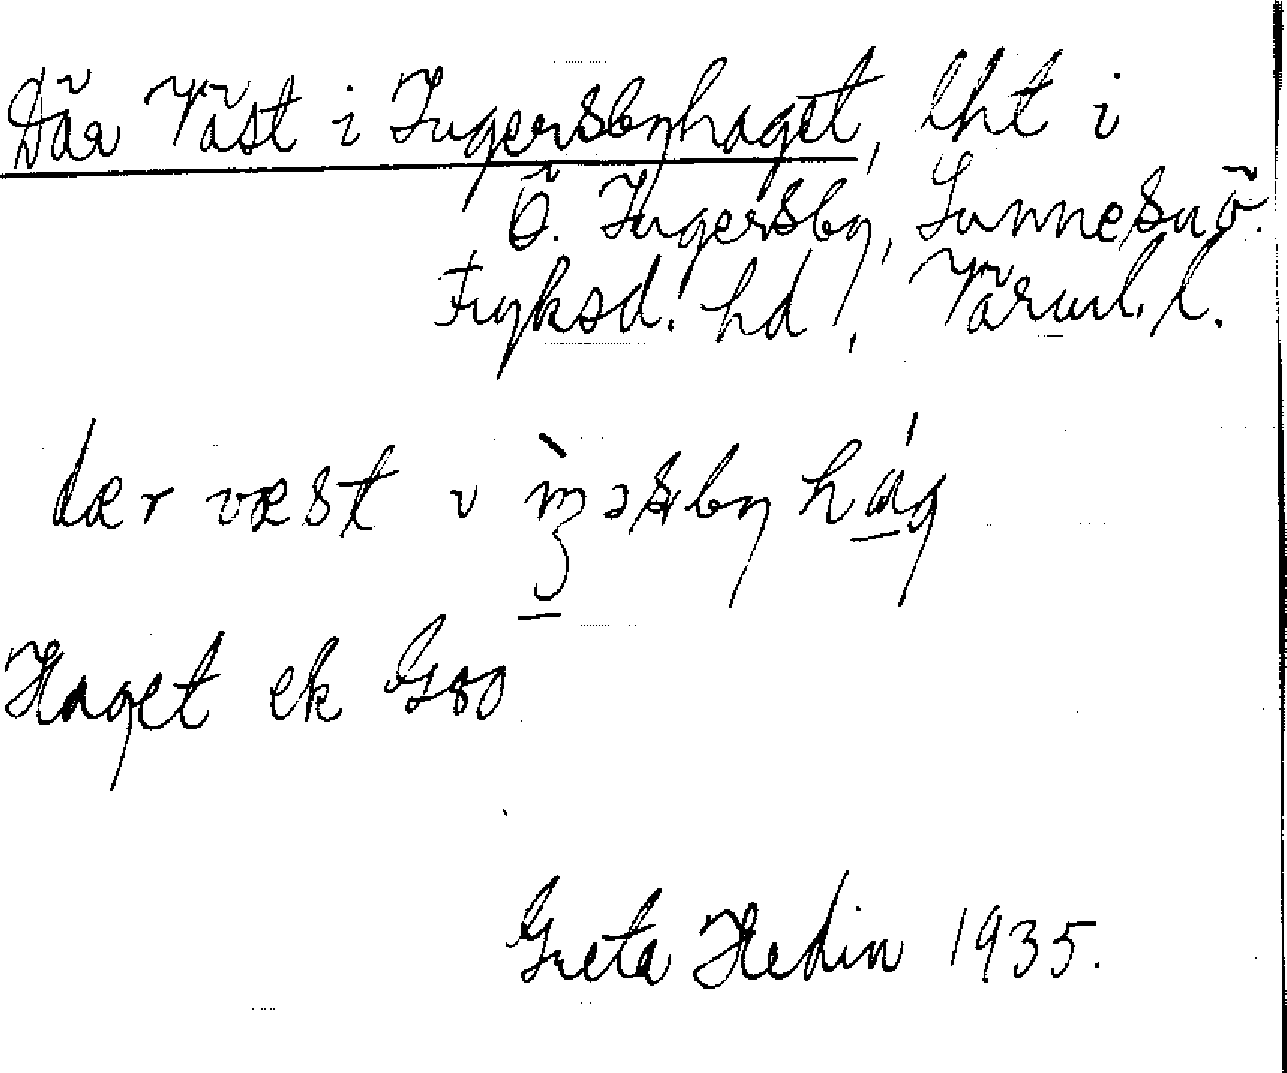 Där Väst i Ingersbyhaget, lht i
Ö. Ingersby, Sunne sn ö.
Fryksd. hd, Värml. l.
dær væst i
Haget ek G 80
Greta Hedin 1935.